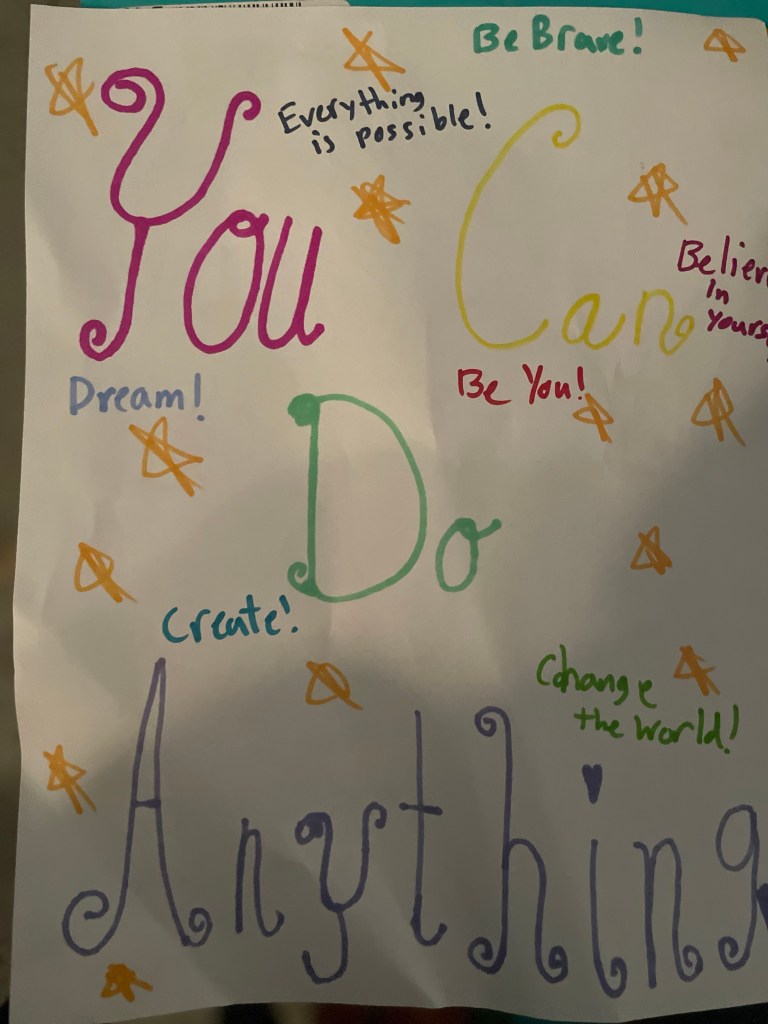 Be Brave!
Everything
is possible!
You Can
Believ
In
Yours
Dream!
Be You!
Do
Create!
Change
the World!
Anything